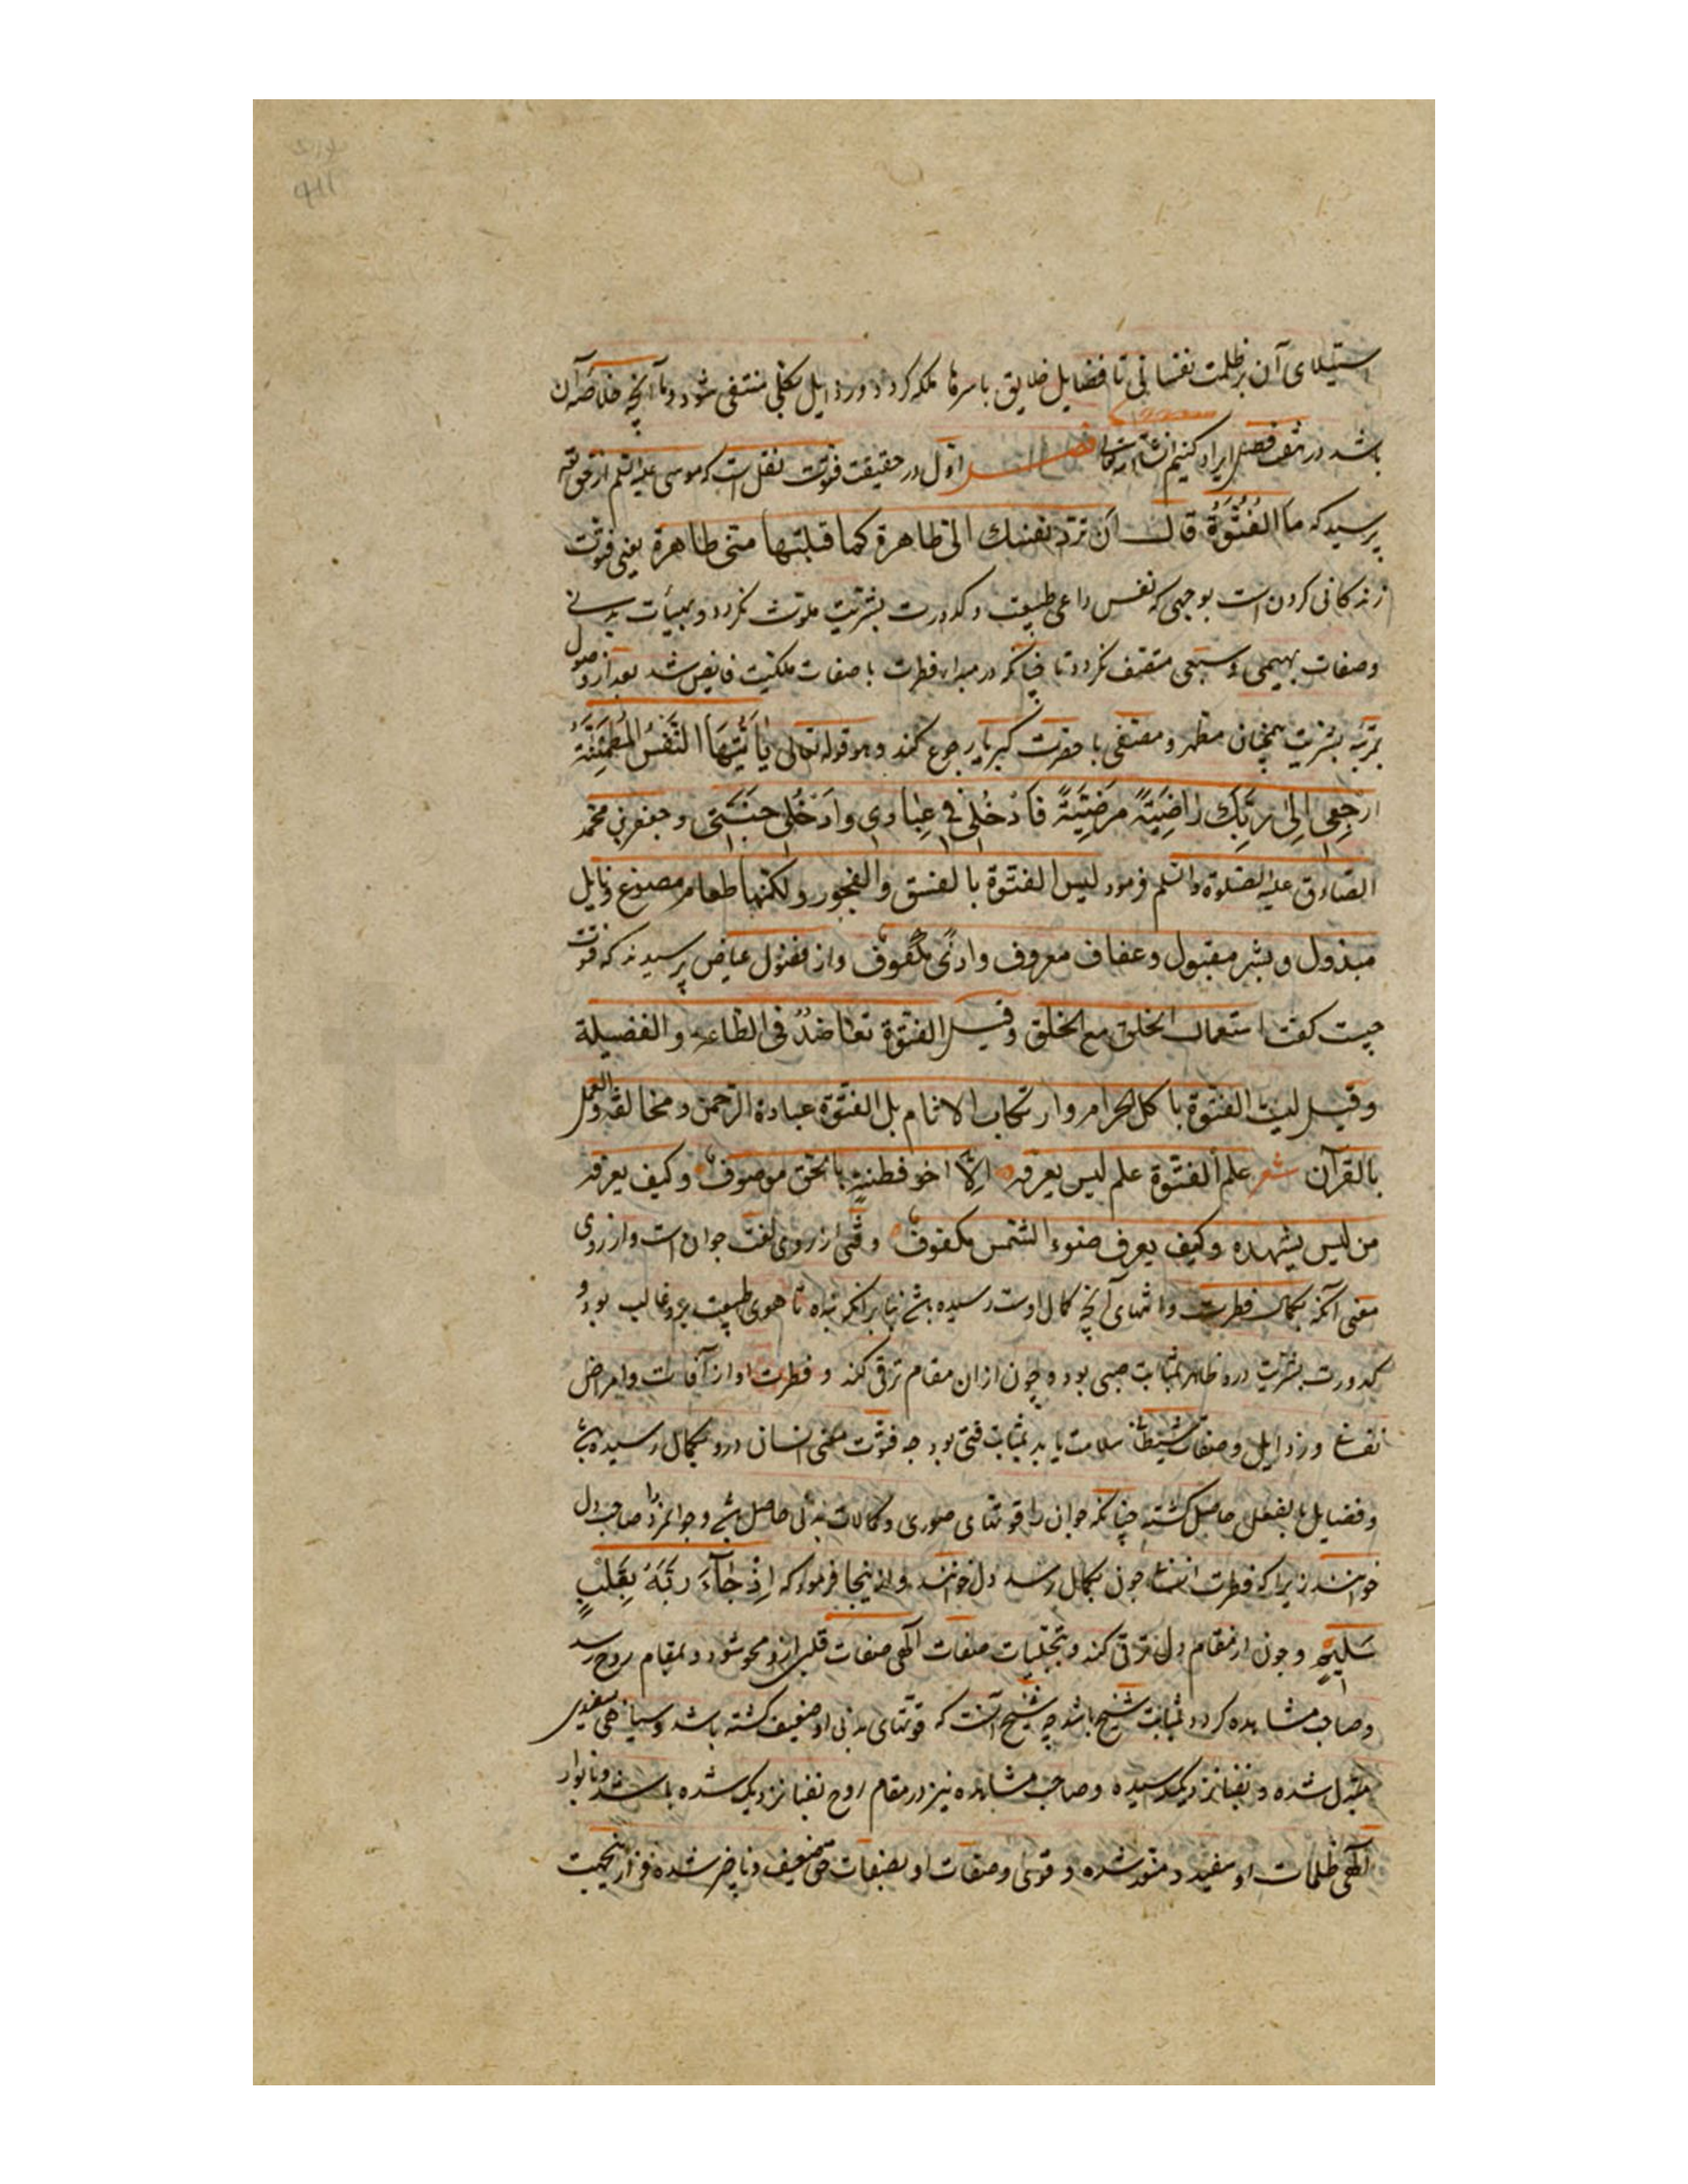 استیلای آن بر ظلمت نفسانی تا فضایل خلایق باسرها ملکه کردد ورذایل بکلی منتفی شود وما آنچه خلاصه آن
باشد در فصل ایراد کنیم انشاء الله تعالی فصل اول در حقیقت فتوت نقل است که موسی علیه السلم از حق
پرسید که ما الفُتُوَّةُ قال أن تردّ نفسك الیّ طاهرة كما قبلتها منّی طاهرة یعنی فتوت
زندکانی کردن است بوجهی که نفس طبیعت وکدورت بشریت ملوث نکردد وبهیأت بدنی
وصفات بهیمی وسبعی متصف نکردد تا چنانکه در مبداء فطرت با صفات ملکیت فایض شد بعد از وصول
بمرتبه بشریت همچنان مطهر ومصفی با حضرت کبریا رجوع کند وهو قوله تعالی یا أَیَّتُهَا النَّفْسُ الْمُطْمَئِنَّةُ
ارْجِعِی إِلَى رَبِّكِ رَاضِیَةً مَرْضِیَّةً فَادْخُلِی فِی عِبَادِی وَادْخُلِی جَنَّتِی وجعفر بن محمد
الصادق علیه الصلوة والسلم فرمود لیس الفتوة بالفسق والفجور ولکنها طعام مصنوع ونایل
مبذول وبشر مقبول وعفاف معروف واذًى مکفوف واز فضیل عیاض پرسیدند که فتوت
چیست کفت استعمال الخلق مع الخلق وقیل الفتوة تعاضدٌ فی الطاعه والفضیلة
وقیل لیست الفتوة باکل الحرام وارتکاب الاثام بل الفتوة عبادة الرحمن ومخالفة والعمل
بالقرآن شعر علم الفتوة علم لیس یعرفه الّا اخو فطنةٍ بالحق موصوف وکیف یعرفه
من لیس یشهده وکیف یعرف ضوء الشمس مکفوف وفتی از روی لغت جوان است واز روی
معنی آنکه بکمال فطرت وانتهای آنچه کمال اوست رسیده باشد بنابر آنکه بنده تا هوی طبیعت برو غالب بود و
کدورت بشریت درو ظاهر بمثابت صبی بود وچون ازان مقام ترقی کند و فطرت او از آفات وامراض
نفسانی ورذایل وصفات شیطانی سلامت یابد بمثابت فتی بود چه فتوت معنی انسان درو بکمال رسیده باشد
وفضایل بالفعل حاصل کشته چنانکه جوان را قوتهای صوری وکمالات بدنی حاصل باشد وجوانمرد را صاحب دل
خوانند زیرا که فطرت انسانی چون بکمال رسد دل خوانند وازینجا فرمود که إِذْ جَآءَ رَبَّهُ بِقَلْبٍ
سَلِیمٍ وچون از مقام دل ترقی کند وبتجلیات صفات الهی صفات قلبی ازو محو شود وبمقام روح رسد
وصاحب مشاهده کردد بمثابت شیخ باشد چه شیخ آنست که قوتهای بدنی او ضعیف کشته باشد وسیاهی بسفیدی
مبدل شده وبفنا نزدیک رسیده وصاحب مشاهده نیز در مقام روح بفنا نزدیک شده باشد وبانوار
الهی ظلمات او سفید ومنور شده وقوی وصفات او بصفات حق ضعیف وناچیز شده وازینجهت